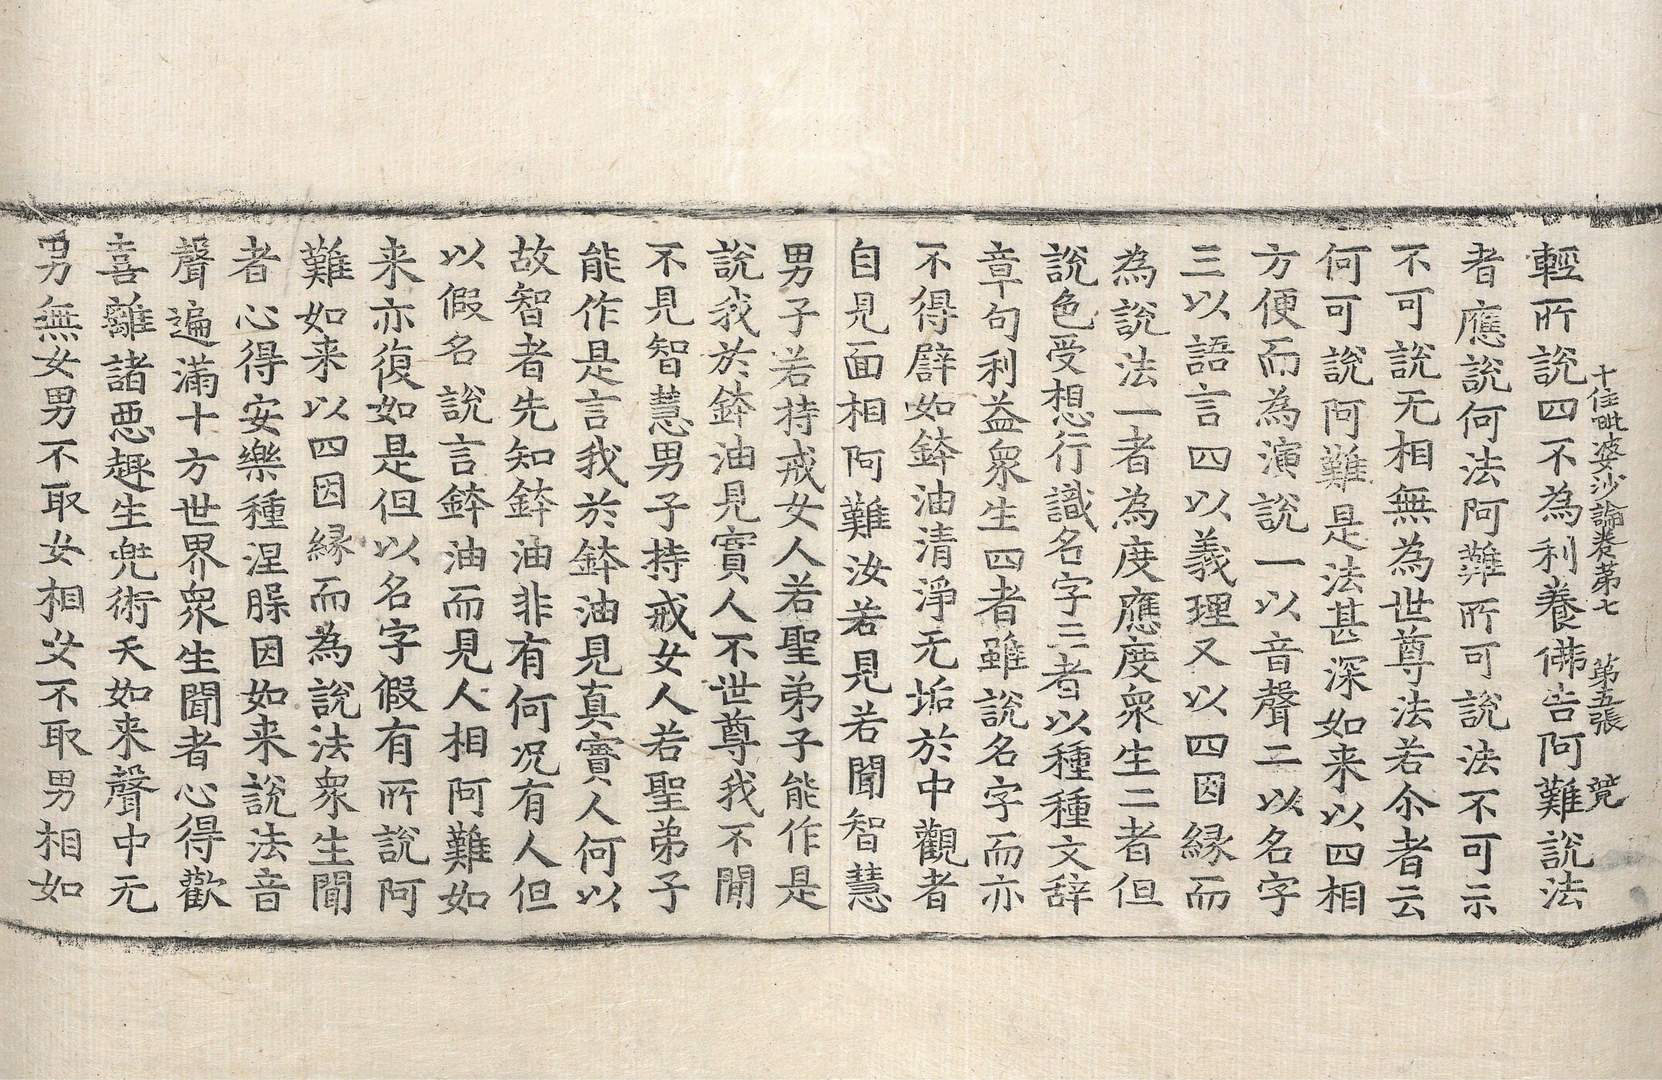 十住毗婆沙論卷第七　第五張　覽
輕所說四不為利養佛告阿難說法
者應說何法阿難所可說法不可示
不可說无相無為世尊法若尒者云
何可說阿難是法甚深如来以四相
方便而為演說一以音聲二以名字
三以語言四以義理又以四因縁而
為說法一者為度應度衆生二者但
說色受想行識名字三者以種種文辞
章句利益衆生四者雖說名字而亦
不得譬如鉢油清淨无垢於中觀者
自見面相阿難汝若見若聞智慧
男子若持戒女人若聖弟子能作是
說我於鉢油見實人不世尊我不聞
不見智慧男子持戒女人若聖弟子
能作是言我於鉢油見真實人何以
故智者先知鉢油非有何况有人但
以假名說言鉢油而見人相阿難如
来亦復如是但以名字假有所說阿
難如来以四因縁而為說法衆生聞
者心得安樂種涅槃因如来說法音
聲遍滿十方世界衆生聞者心得歡
喜離諸惡趣生兜術天如来聲中无
男無女男不取女相女不取男相如